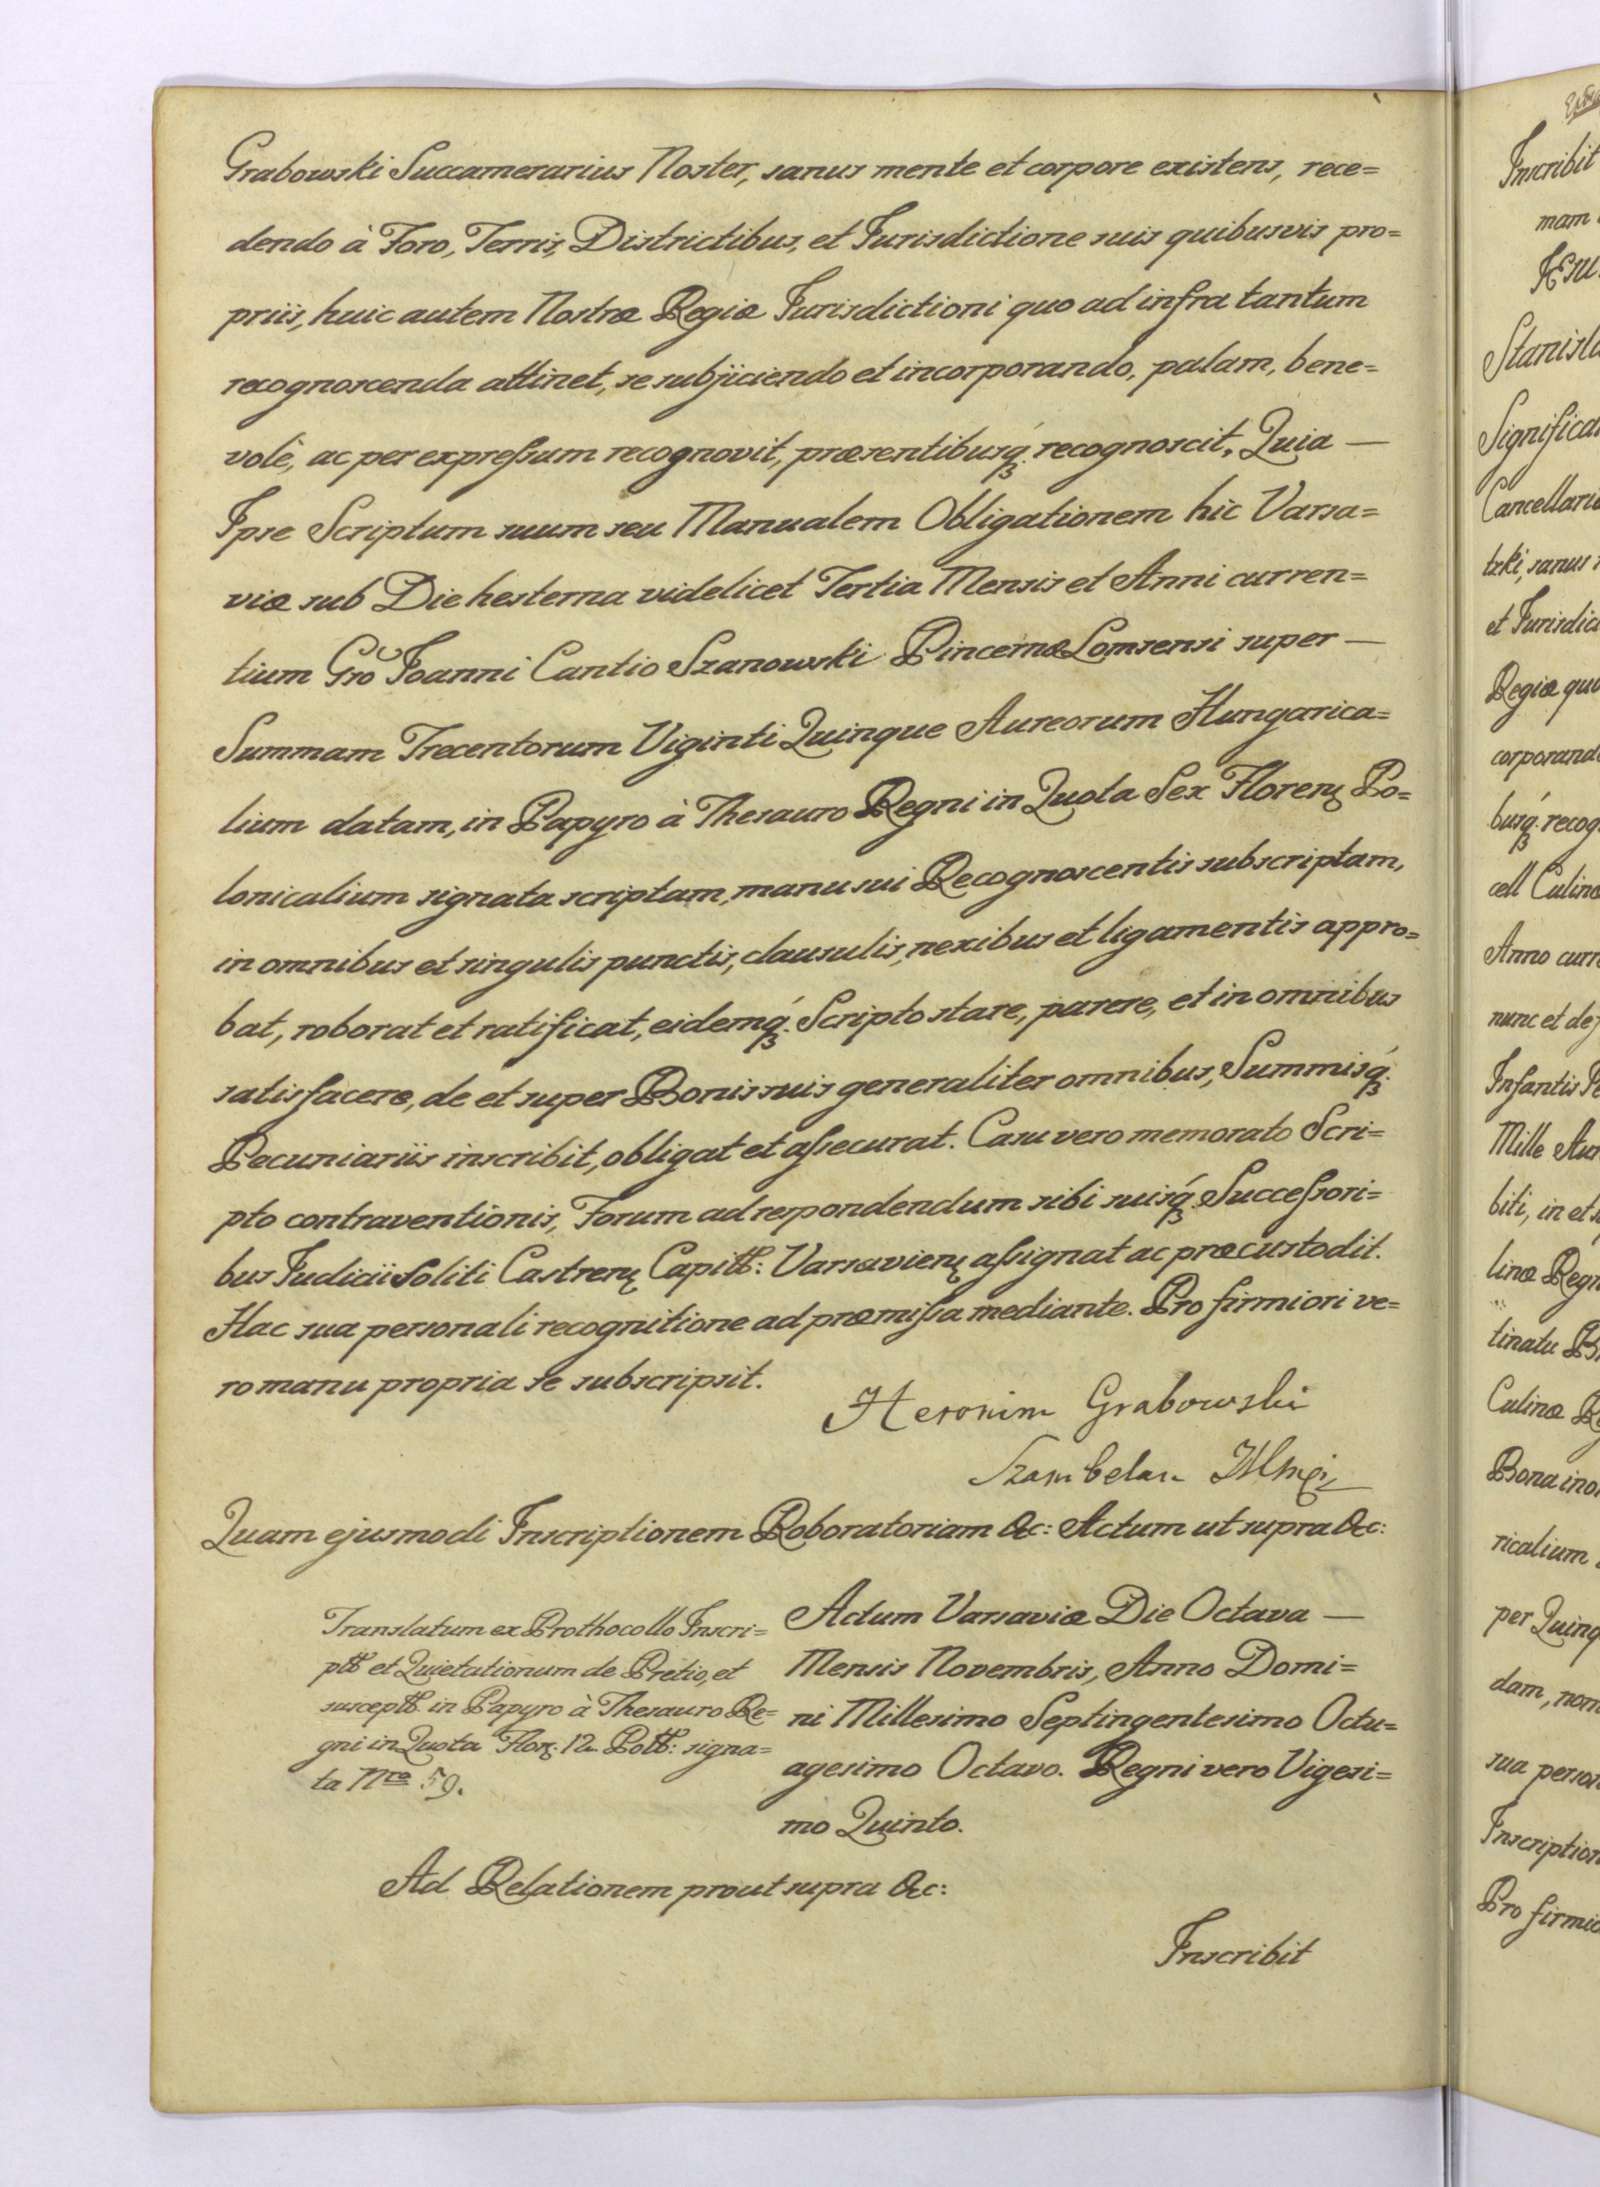 Grabowski Succamerarius Noster, sanus mente et corpore existens, rece=
dendo à Foro, Terris, Districtibus, et Jurisdictione suis quibusvis pro=
priis, huic autem Nostræ Regiæ Jurisdictioni quo ad infra tantum
recognoscenda attinet, se subjiciendo et incorporando, palam, bene=
volè, ac per expressum recognovit, præsentibusq́ʒ recognoscit, Quia —
Ipse Scriptum suum seu Manualem Obligationem hic Varsa=
viæ sub Die hesterna videlicet Tertia Mensis et Anni curren=
tium Gro Joanni Cantio Szanowski Pincernæ Lomsensi super —
Summam Trecentorum Viginti Quinque Aureorum Hungarica=
lium datam, in Papyro à Thesauro Regni in Quota Sex Florenʒ Po=
lonicalium signata scriptam, manu sui Recognoscentis subscriptam,
in omnibus et singulis punctis, clausulis, nexibus et ligamentis appro=
bat, roborat et ratificat, eidemq́ʒ Scripto stare, parere, et in omnibus
satisfacere, de et super Bonis suis generaliter omnibus, Summisq́ʒ
Pecuniariis inscribit, obligat et assecurat. Casu vero memorato Scri=
pto contraventionis, Forum ad respondendum sibi suisq́ʒ Successori=
bus Judicii Soliti Castrenʒ Capitt: Varsavienʒ assignat ac præcustodit.
Hac sua personali recognitione ad præmissa mediante. Pro firmiori ve=
ro manu propria se subscripsit.
Heronim Grabowski
Szambelan
Quam ejusmodi Inscriptionem Roboratoriam &c: Actum ut supra &c:
Translatum ex Prothocollo Inscri=
ptt et Quietationum de Pretio, et
susceptt in Papyro à Thesauro Re=
gni in Quota Florʒ. 12 Pott: signa=
ta Nro 59.
Actum Varsaviæ Die Octava —
Mensis Novembris, Anno Domi=
ni Millesimo Septingentesimo Octu=
agesimo Octavo. Regni vero Vigesi=
mo Quinto.
Ad Relationem prout supra &c:
Inscribit
Inscribit
mam
Stanisla
Significa
Cancellari
tzki, sanus
et Jurisdic
Regiæ qu
corporand
busq́ʒ recog
cell Culinæ
Anno curr
nunc et de
Infantis
Mille Au
biti, in et
linæ Regn
tinatu
Culinæ
Bona in
ricalium
per Quinq
dam, non
sua person
Inscription
Pro firmi